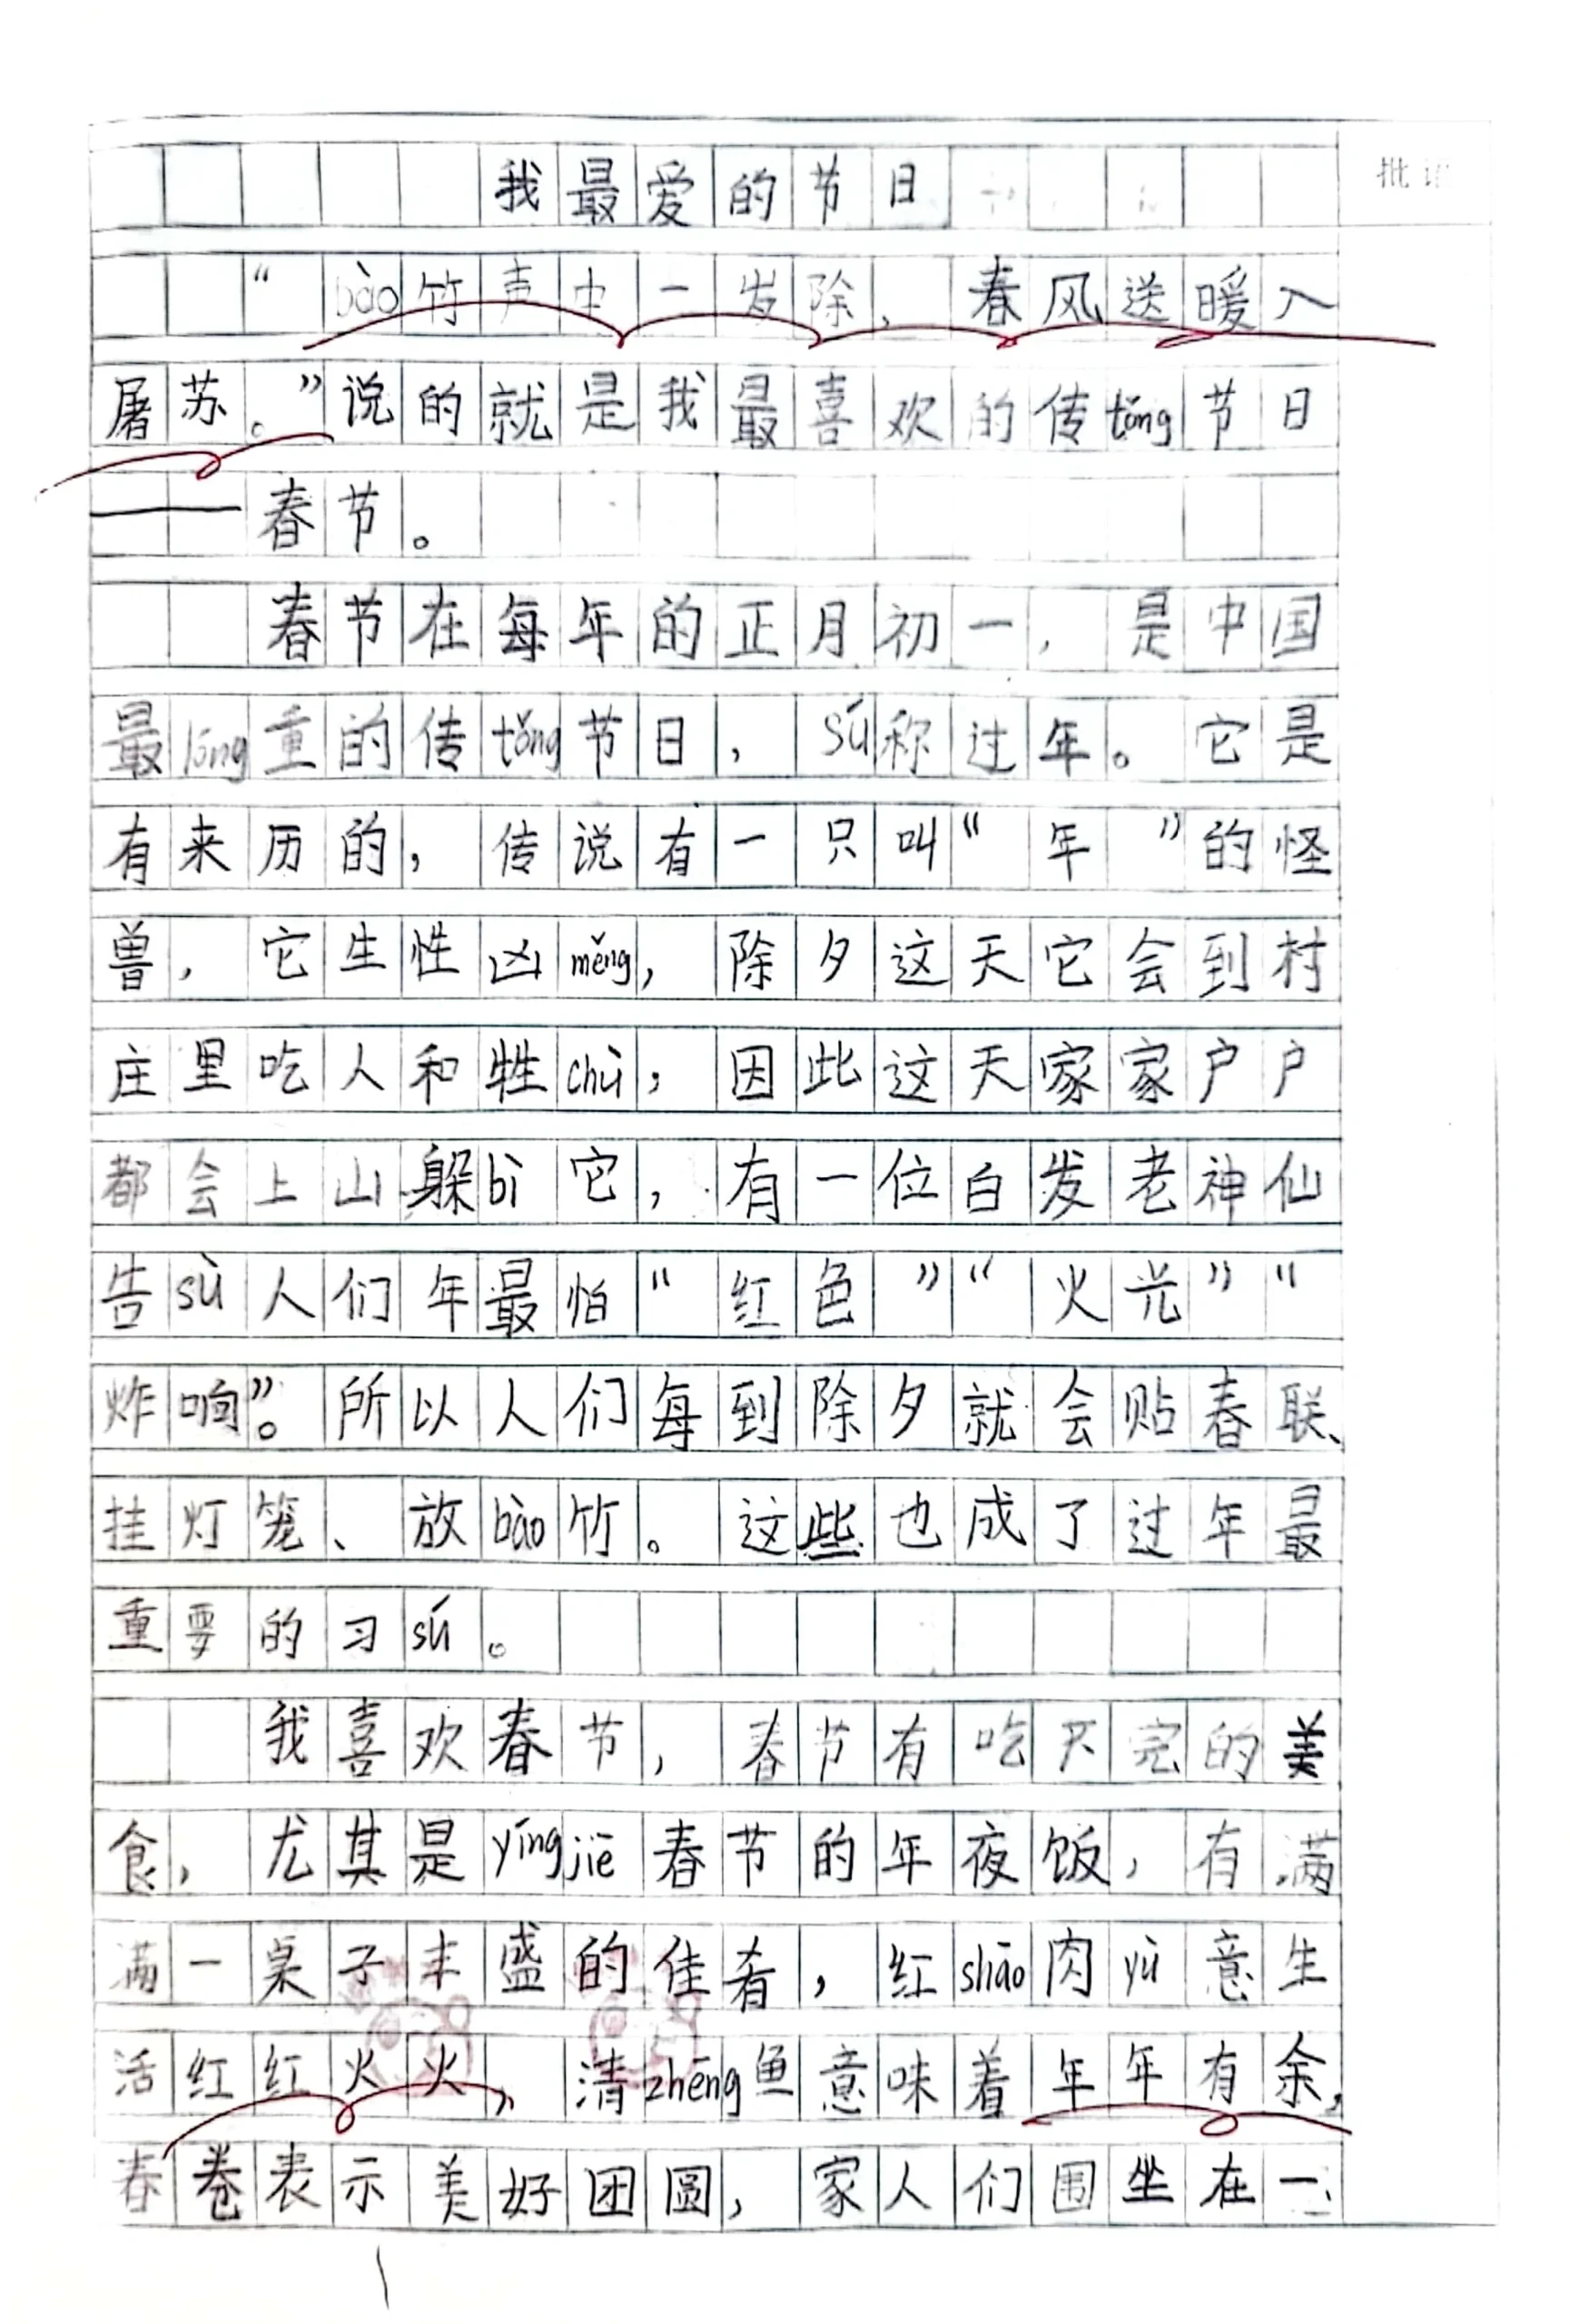 我最爱的节日
批语
“bào竹声中一岁除，春风送暖入
屠苏。”说的就是我最喜欢的传tǒng节日
——春节。
春节在每年的正月初一，是中国
最lóng重的传tǒng节日，sú称过年。它是
有来历的，传说有一只叫“年”的怪
兽，它生性凶měng，除夕这天它会到村
庄里吃人和牲chù，因此这天家家户户
都会上山躲bì它，有一位白发老神仙
告sù人们年最怕“红色”“火光”“
炸响”。所以人们每到除夕就会贴春联、
挂灯笼、放bào竹。这些也成了过年最
重要的习sú。
我喜欢春节，春节有吃不完的美
食，尤其是yíngjiē春节的年夜饭，有满
满一桌子丰盛的佳肴，红shāo肉yù意生
活红红火火，清zhēng鱼意味着年年有余，
春卷表示美好团圆，家人们围坐在一